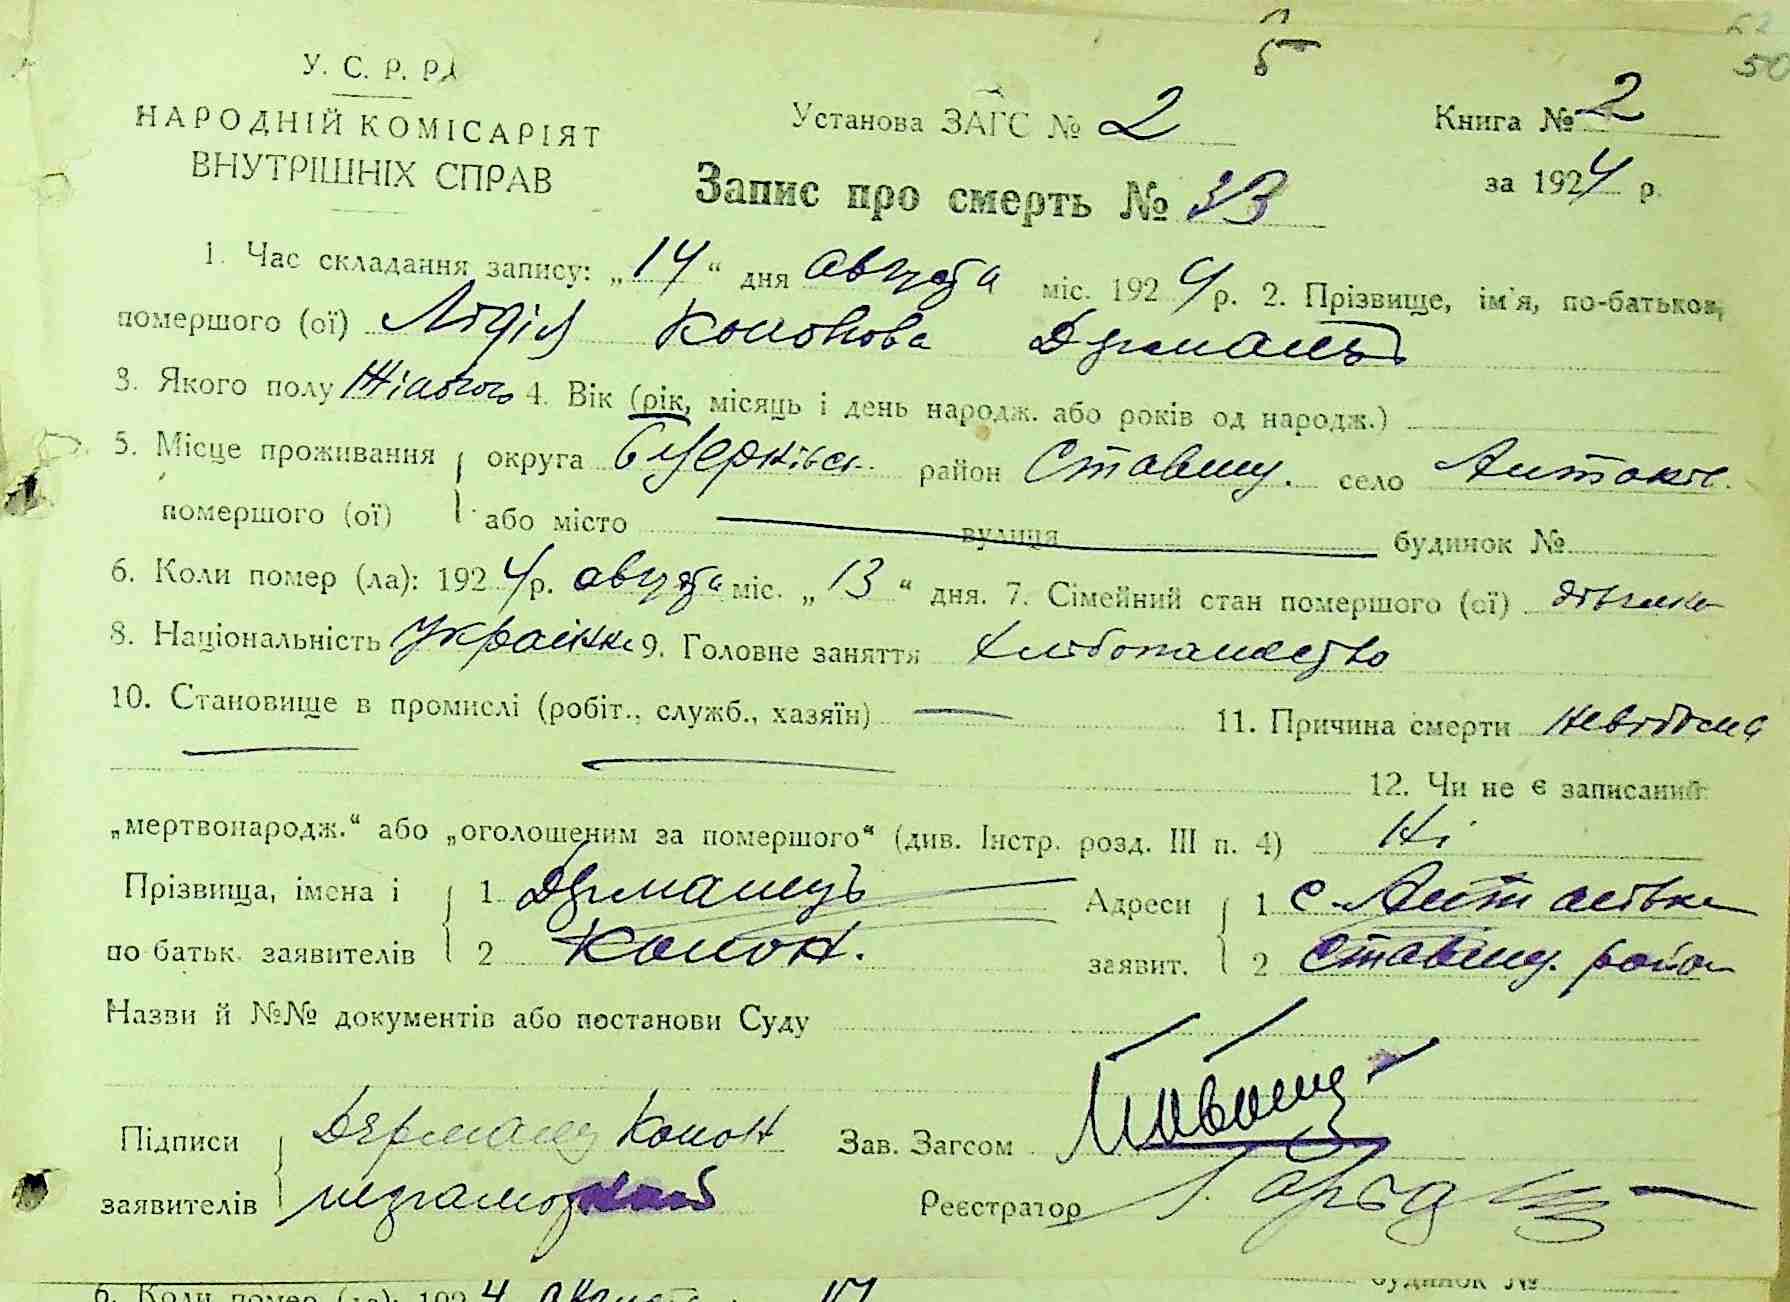 5
50
У. С. Р. Р.
НАРОДНІЙ КОМІСАРІЯТ
ВНУТРІШНІХ СПРАВ
Установа ЗАГС № 2
Книга № 2
за 1924 р.
Запис про смерть № 33
1. Час складання запису: „14“ дня августа міс. 1924 р. 2. Прізвище, ім'я, по-батькові,
помершого (ої) Лідія Кононова
3. Якого полу Жіночого 4. Вік (рік, місяць і день народж. або років од народж.)
5. Місце проживання округа Б/Церківськ. район Ставищ. село
помершого (ої) або місто вулиця будинок №
6. Коли помер (ла): 1924 р. августа міс. „13“ дня. 7. Сімейний стан помершого (ої) дівчина
8. Національність Українка 9. Головне заняття хліборобство
10. Становище в промислі (робіт., служб., хазяїн) — 11. Причина смерти невідома
12. Чи не є записаний
„мертвонародж.“ або „оголошеним за помершого“ (див. Інстр. розд. III п. 4) Ні
Прізвища, імена і 1 Адреси 1 с.
по батьк. заявителів 2 Конон. заявит. 2 Ставищ. район
Назви й №№ документів або постанови Суду
Підписи Конон Зав. Загсом
заявителів неграмотный Реєстратор
6. Коли помер (ла): 1924 августа 17 будинок №